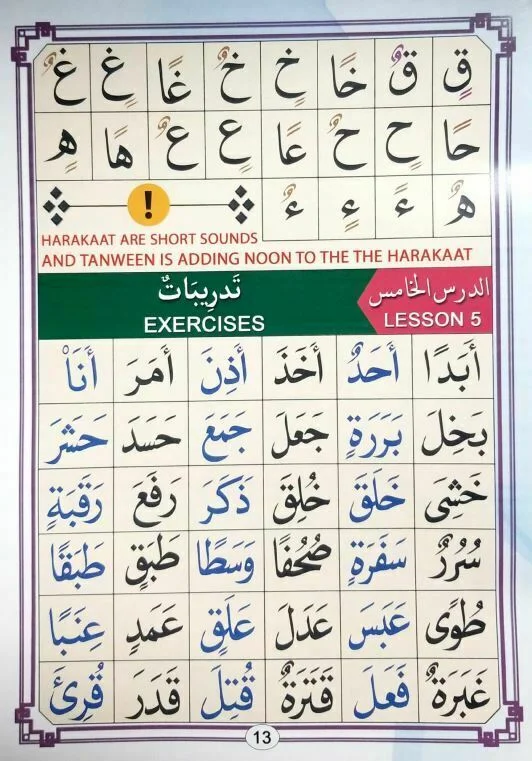 قٍ قٌ خًا خٍ خٌ غًا غٍ غٌ
حًا حٍ حٌ عًا عٍ عٌ هًا هٍ
هٌ ءً ءٍ ءٌ !
HARAKAAT ARE SHORT SOUNDS
AND TANWEEN IS ADDING NOON TO THE THE HARAKAAT
الدرس الخامس تَدرِيبَاتٌ
LESSON 5 EXERCISES
أَبَدًا أَحَدٌ أَخَذَ أَذِنَ أَمَرَ أَنَا۠
بَخِلَ بَرَرَةٍ جَعَلَ جَمَعَ حَسَدَ حَشَرَ
خَشِيَ خَلَقَ خُلِقَ ذَكَرَ رَفَعَ رَقَبَةٍ
سُرُرٌ سَفَرَةٍ صُحُفًا وَسَطًا طَبَقٍ طَبَقًا
طُوًى عَبَسَ عَدَلَ عَلَقٍ عَمَدٍ عِنَبًا
غَبَرَةٌ فَعَلَ قَتَرَةٌ قُتِلَ قَدَرَ قُرِئَ
13